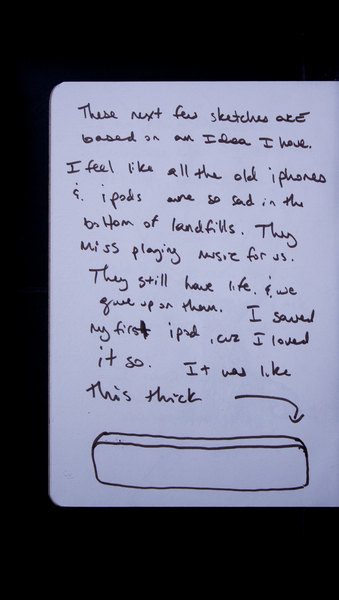 These next few sketches are
based on an Idea I have.
I feel like all the old iphones
& ipods are so sad in the
bottom of landfills. They
Miss playing music for us.
They still have life, & we
gave up on them. I saved
my first ipod, cuz I loved
it so. It was like
this thick